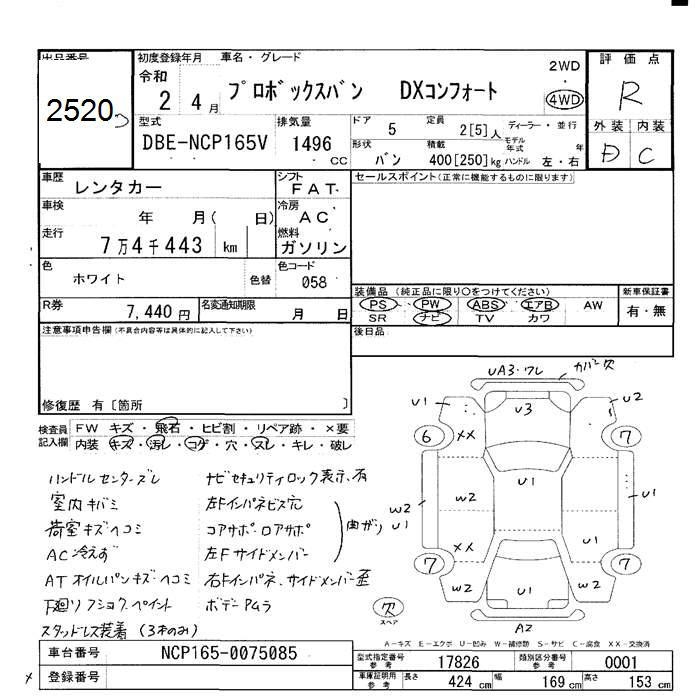 出品番号
2520
初度登録年月
令和
2 4月
車名・グレード
プロボックスバン DXコンフォート
2WD
4WD
評価点
R
外装 内装
D C
型式
DBE-NCP165V
排気量
1496 CC
ドア
5
定員
2[5]人
ディーラー・並行
形状
バン
積載
400[250]kg
モデル年式 年
ハンドル 左・右
車歴
レンタカー
シフト
FAT
セールスポイント(正常に機能するものに限ります)
車検
年 月( 日)
冷房
AC
走行
7万4千443 km
燃料
ガソリン
色
ホワイト
色替
色コード
058
装備品(純正品に限り○をつけてください)
PS PW ABS エアB AW
SR ナビ TV カワ
新車保証書
有・無
R券
7,440円
名変通知期限
月 日
注意事項申告欄(不具合内容等は具体的に記入して下さい)
後日品
修復歴 有〔箇所 〕
検査員記入欄
FW キズ・飛石・ヒビ割・リペア跡・×要
内装 キズ・汚レ・コゲ・穴・スレ・キレ・破レ
ハンドルセンターズレ
室内キバミ
荷室キズヘコミ
AC冷えず
ATオイルパンキズヘコミ
下廻リフショクペイント
スタッドレス装着(3本のみ)
ナビセキュリティロック表示有
左Fインパネビス穴
コアサポ・ロアサポ
左Fサイドメンバー
曲がり
右Fインパネ、サイドメンバー歪
ボデーPムラ
UA3・ワレ
カバー欠
U1
U3
U2
6
XX
7
W2
U1
U1
W2
U1
U1
7
XX
7
W2
U1
W2
A2
欠
スペア
A−キズ E−エクボ U−凹み W−補修跡 S−サビ C−腐食 XX−交換済
車台番号
NCP165-0075085
登録番号
型式指定番号 参考
17826
類別区分番号 参考
0001
車庫証明用 参考
長さ
424 cm
幅
169 cm
高さ
153 cm